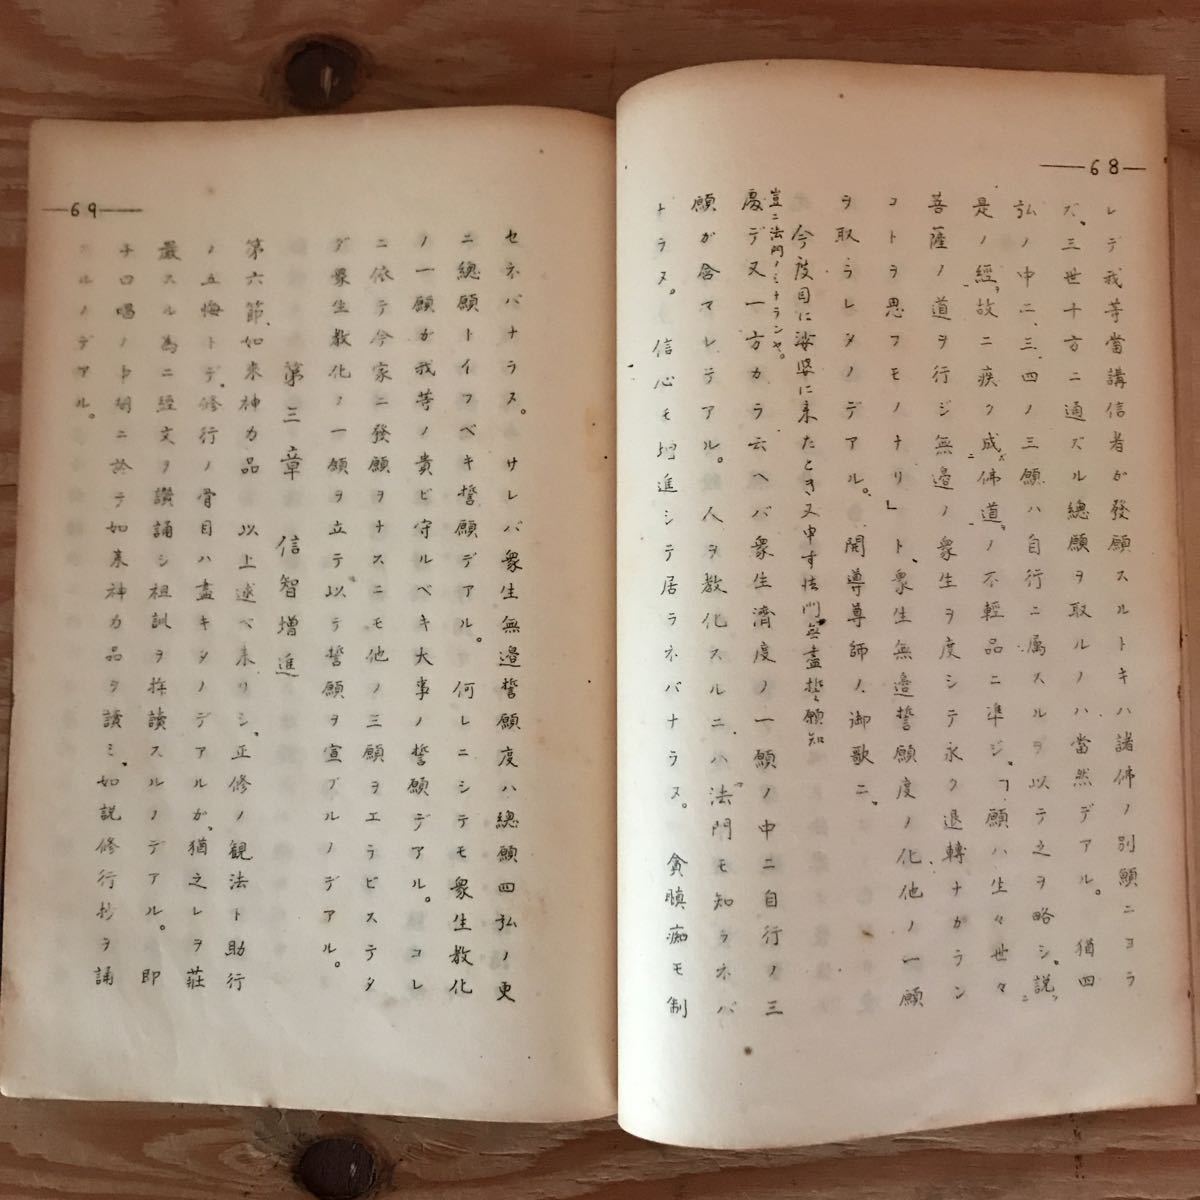 —68—
レデ我等當講信者ガ發願スルトキハ諸佛ノ別願ニヨラ
ズ、三世十方ニ通ズル總願ヲ取ルノハ當然デアル。猶四
弘ノ中ニ、三、四ノ三願ハ自行ニ属スルヲ以テ之ヲ略シ、説
是ノ經、故ニ疾ク成佛道、ノ不輕品ニ準ジ、「願ハ生々世々
菩薩ノ道ヲ行ジ無邉ノ衆生ヲ度シテ永ク退轉ナカラン
コトヲ思フモノナリ」ト、衆生無邉誓願度ノ化他ノ一願
ヲ取ラレタノデアル。開導尊師ノ御歌ニ、
今度目に娑婆に来たとき又申す法門無盡誓願知
豈ニ法門ノミナランヤ。
慶デ又一方カラ云ヘバ衆生濟度ノ一願ノ中ニ自行ノ三
願が含マレテアル。人ヲ教化スルニハ法門モ知ラネバ
ナラヌ。信心モ増進シテ居ラネバナラヌ。貪瞋痴モ制
—69—
セネバナラヌ。サレバ衆生無邉誓願度ハ總願四弘ノ更
ニ總願トイフベキ誓願デアル。何レニシテモ衆生教化
ノ一願ガ我等ノ貴ビ守ルベキ大事ノ誓願デアル。コレ
ニ依テ今家ニ發願ヲナスニモ他ノ三願ヲエラビステタ
ダ衆生教化ノ一願ヲ立テ以テ誓願ヲ宣ブルノデアル。
第三章 信智増進
第六節、如来神力品 以上述ベ来リシ、正修ノ観法ト助行
ノ五悔トデ、修行ノ骨目ハ盡キタノデアルガ、猶之レヲ荘
嚴スル為ニ經文ヲ讃誦シ祖訓ヲ拝讀スルノデアル。即
チ口唱ノト
ニ於テ如来神力品ヲ讀ミ、如説修行抄ヲ誦
スルノデアル。